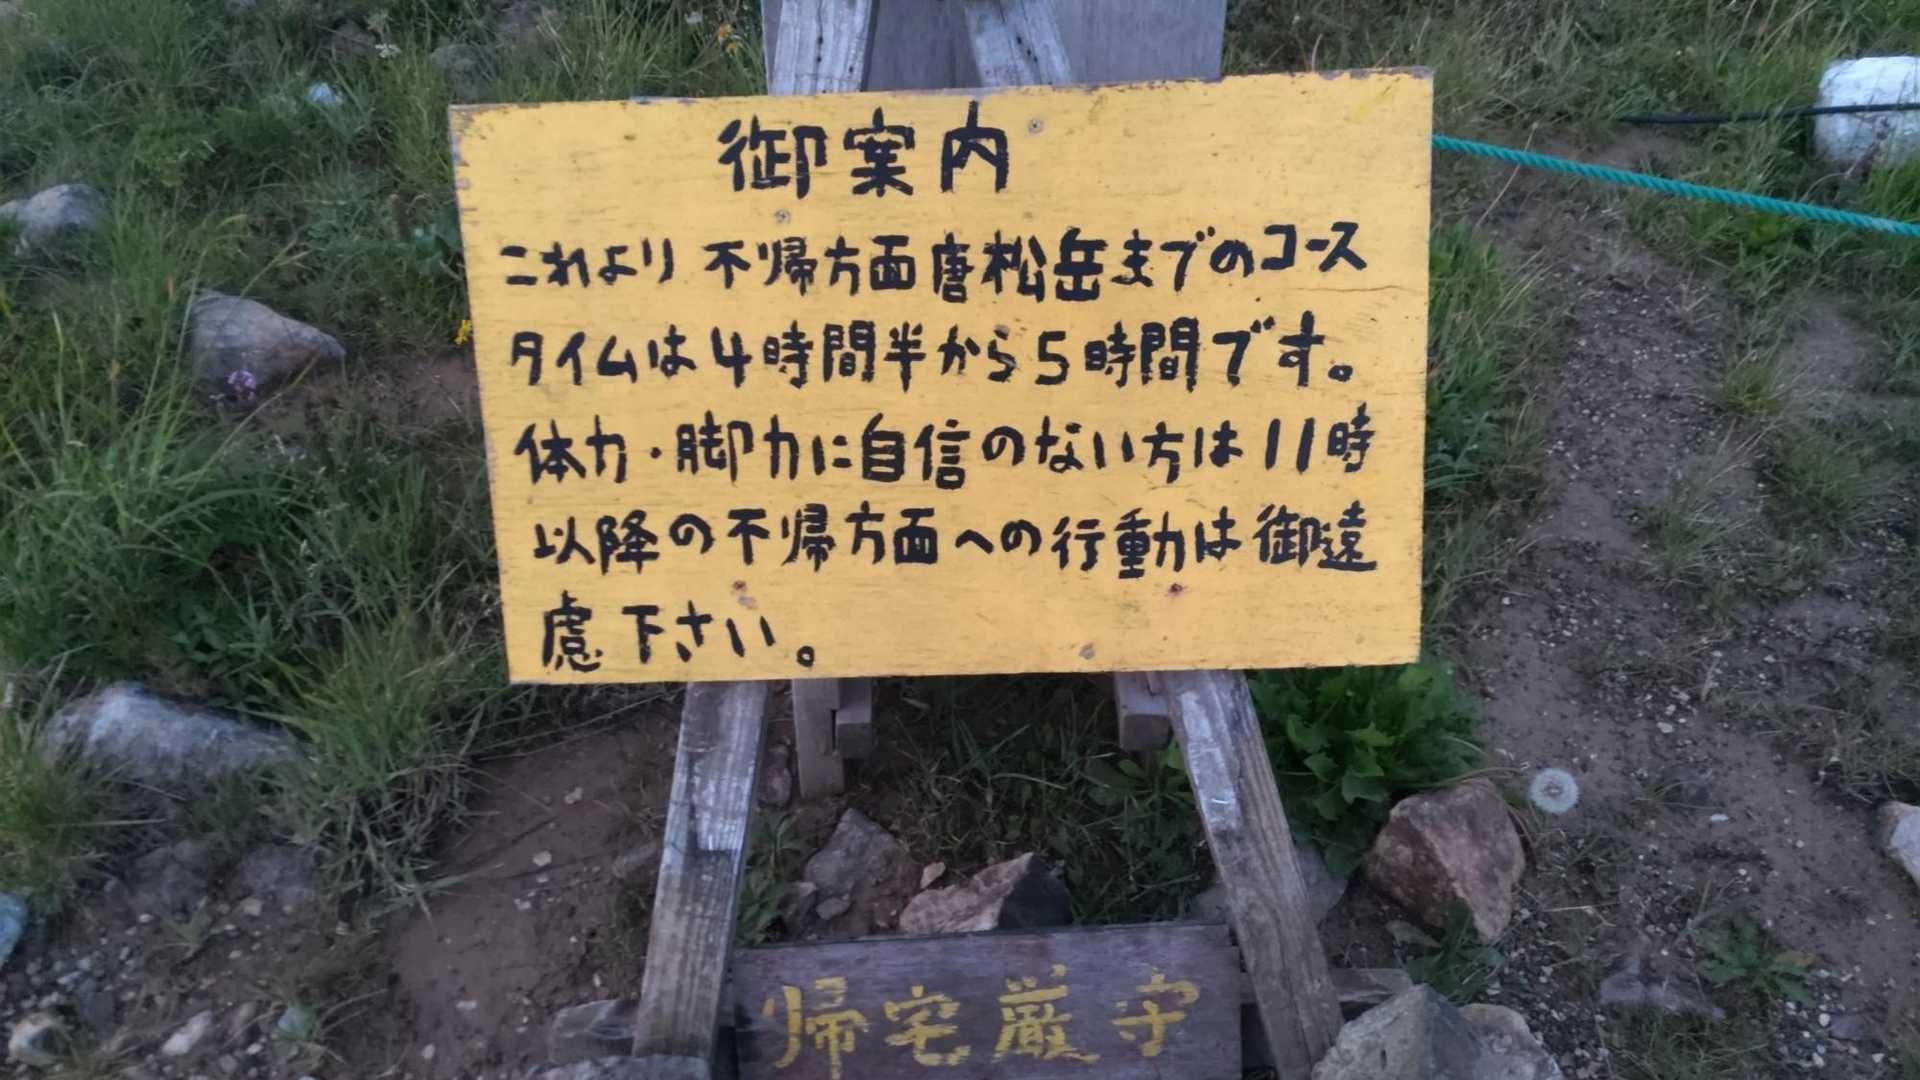 御案内
これより不帰方面唐松岳までのコース
タイムは4時間半から5時間です。
体力・脚力に自信のない方は11時
以降の不帰方面への行動は御遠
慮下さい。
帰宅厳守